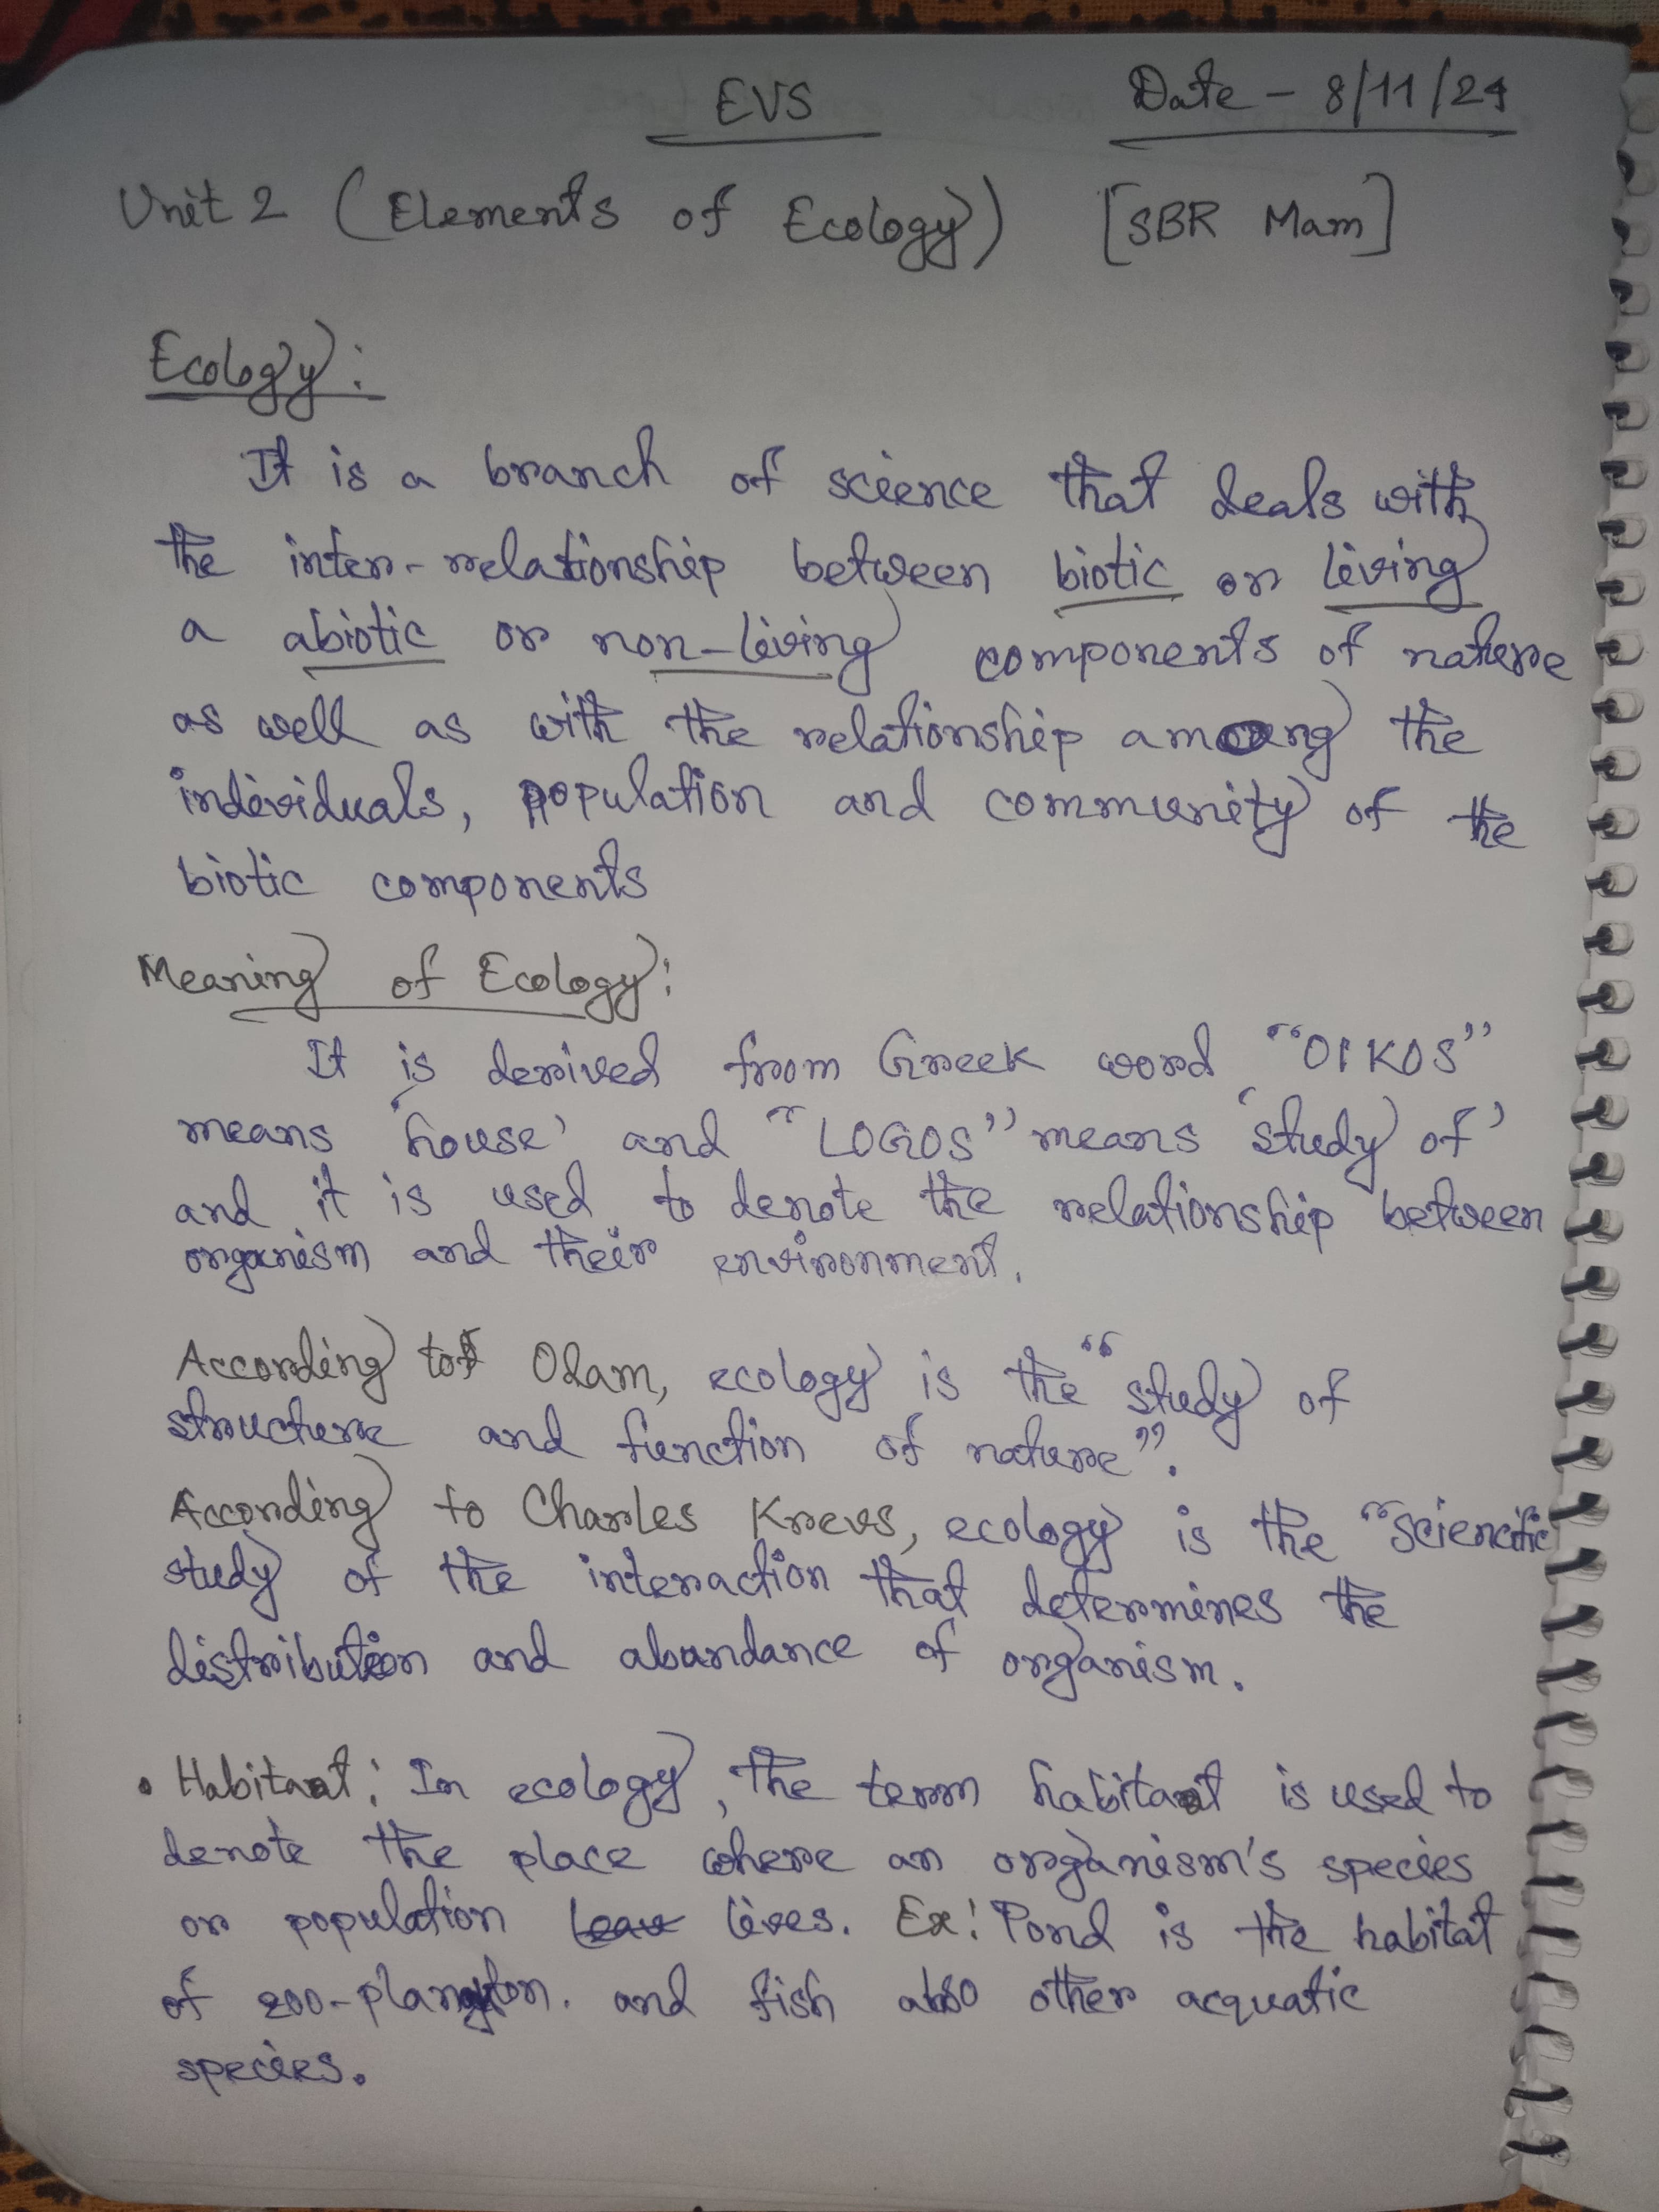 EVS Date - 8/11/24
Unit 2 (Elements of Ecology) [SBR Mam]
Ecology:
It is a branch of science that deals with
the inter-relationship between biotic or living
a abiotic or non-living components of nature
as well as with the relationship among the
individuals, population and community of the
biotic components
Meaning of Ecology:
It is derived from Greek word "OIKOS"
means 'house' and "LOGOS" means 'study of'
and it is used to denote the relationship between
organism and their environment.
According to Odam, ecology is the "study of
structure and function of nature".
According to Charles Krevs, ecology is the "sciencific
study of the interaction that determines the
distribution and abundance of organism.
• Habitat: In ecology, the term habitat is used to
denote the place where an organism's species
or population lives. Ex: Pond is the habitat
of zoo-plankton. and fish also other acquatic
species.